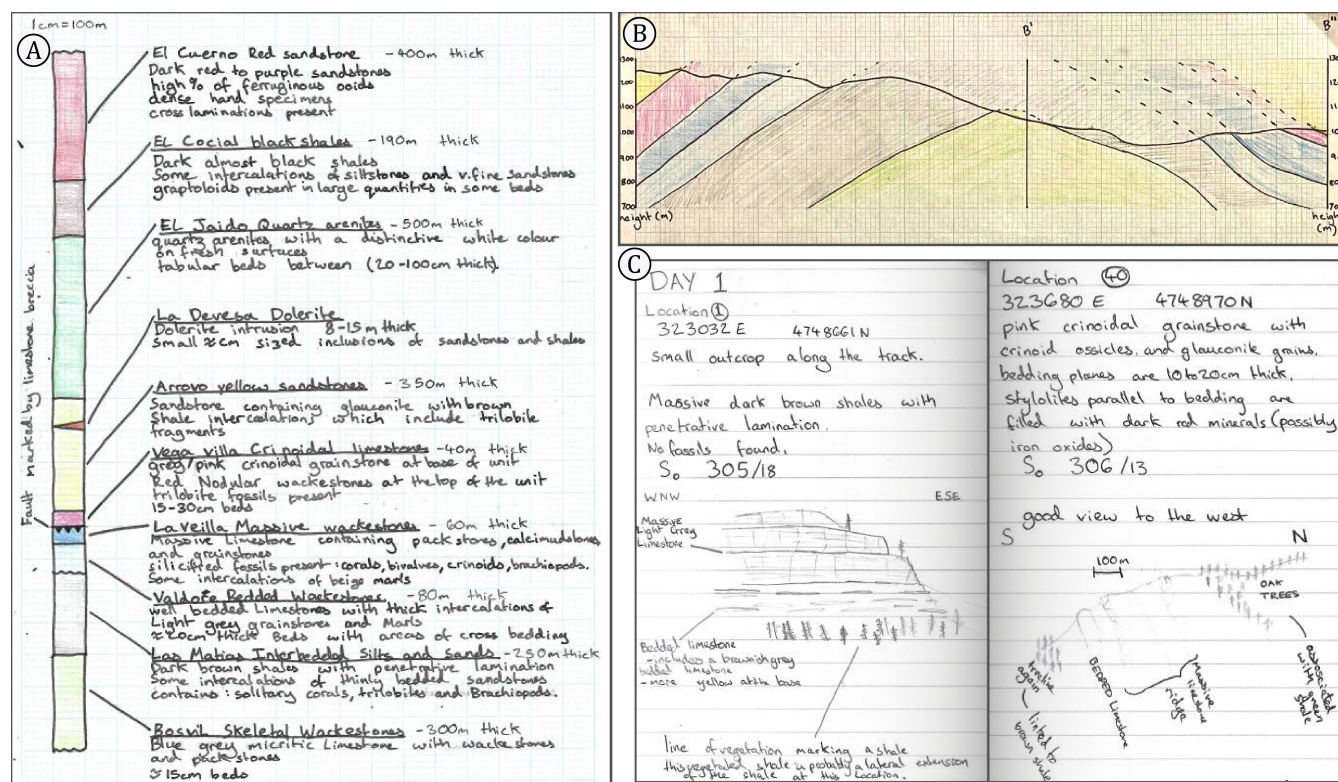 1cm=100m
A
El Cuerno Red sandstone - 400m thick
Dark red to purple sandstones
high % of ferruginous ooids
dense hand specimens
cross laminations present
EL Cocial black shales - 190m thick
Dark almost black shales
Some intercalations of siltstones and v.fine sandstones
graptoloids present in large quantities in some beds
EL Jaido Quartz arenites - 500m thick
quartz arenites with a distinctive white colour
on fresh surfaces
tabular beds between (20-100cm thick).
La Devesa Dolerite
Dolerite intrusion 8-15m thick
small ≈cm sized inclusions of sandstones and shales
Arroyo yellow sandstones - 350m thick
Sandstone containing glauconite with brown
Shale intercalations which include trilobite
fragments
Vega villa Crinoidal limestones - 40m thick
grey/pink crinoidal grainstone at base of unit
Red Nodular wackestones at the top of the unit
trilobite fossils present
15-30cm beds
La Veilla Massive wackestones - 60m thick
Massive Limestone containing packstones, calcimudstones,
and grainstones
silicified fossils present: corals, bivalves, crinoids, brachiopods.
Some intercalations of beige marls
Valdoré Bedded Wackestones - 80m thick
well bedded Limestones with thick intercalations of
Light grey grainstones and Marls
≈20cm thick Beds with areas of cross bedding
Las Matias Interbedded Silts and Sands - 250m thick
Dark brown shales with penetrative lamination
Some intercalations of thinly bedded sandstones
contains: solitary corals, trilobites and Brachiopods.
Bosvil Skeletal Wackestones - 300m thick
Blue grey micritic Limestone with wackestones
and packstones
≈15cm beds
Fault marked by limestone breccia
B
B'
B"
1300
1200
1100
1000
900
800
700
height (m)
height
(m)
C
DAY 1
Location 1
323032 E 4748661 N
small outcrop along the track.
Massive dark brown shales with
penetrative lamination.
No fossils found.
S₀ 305/18
WNW ESE
Massive
Light Grey
Limestone
Bedded limestone
- includes a brownish grey
bedded limestone
- more yellow at the base
line of vegetation marking a shale
this vegetated shale is probably a lateral extension
of the shale at this location.
Location 40
323680 E 4748970 N
pink crinoidal grainstone with
crinoid ossicles, and glauconite grains.
bedding planes are 10 to 20cm thick.
stylolites parallel to bedding are
filled with dark red minerals (possibly
iron oxides)
S₀ 306/13
good view to the west
S N
100m
OAK
TREES
associated
with green
shale
Massive
limestone
ridge
BEDDED Limestone
treeline
again
linked to
brown shale